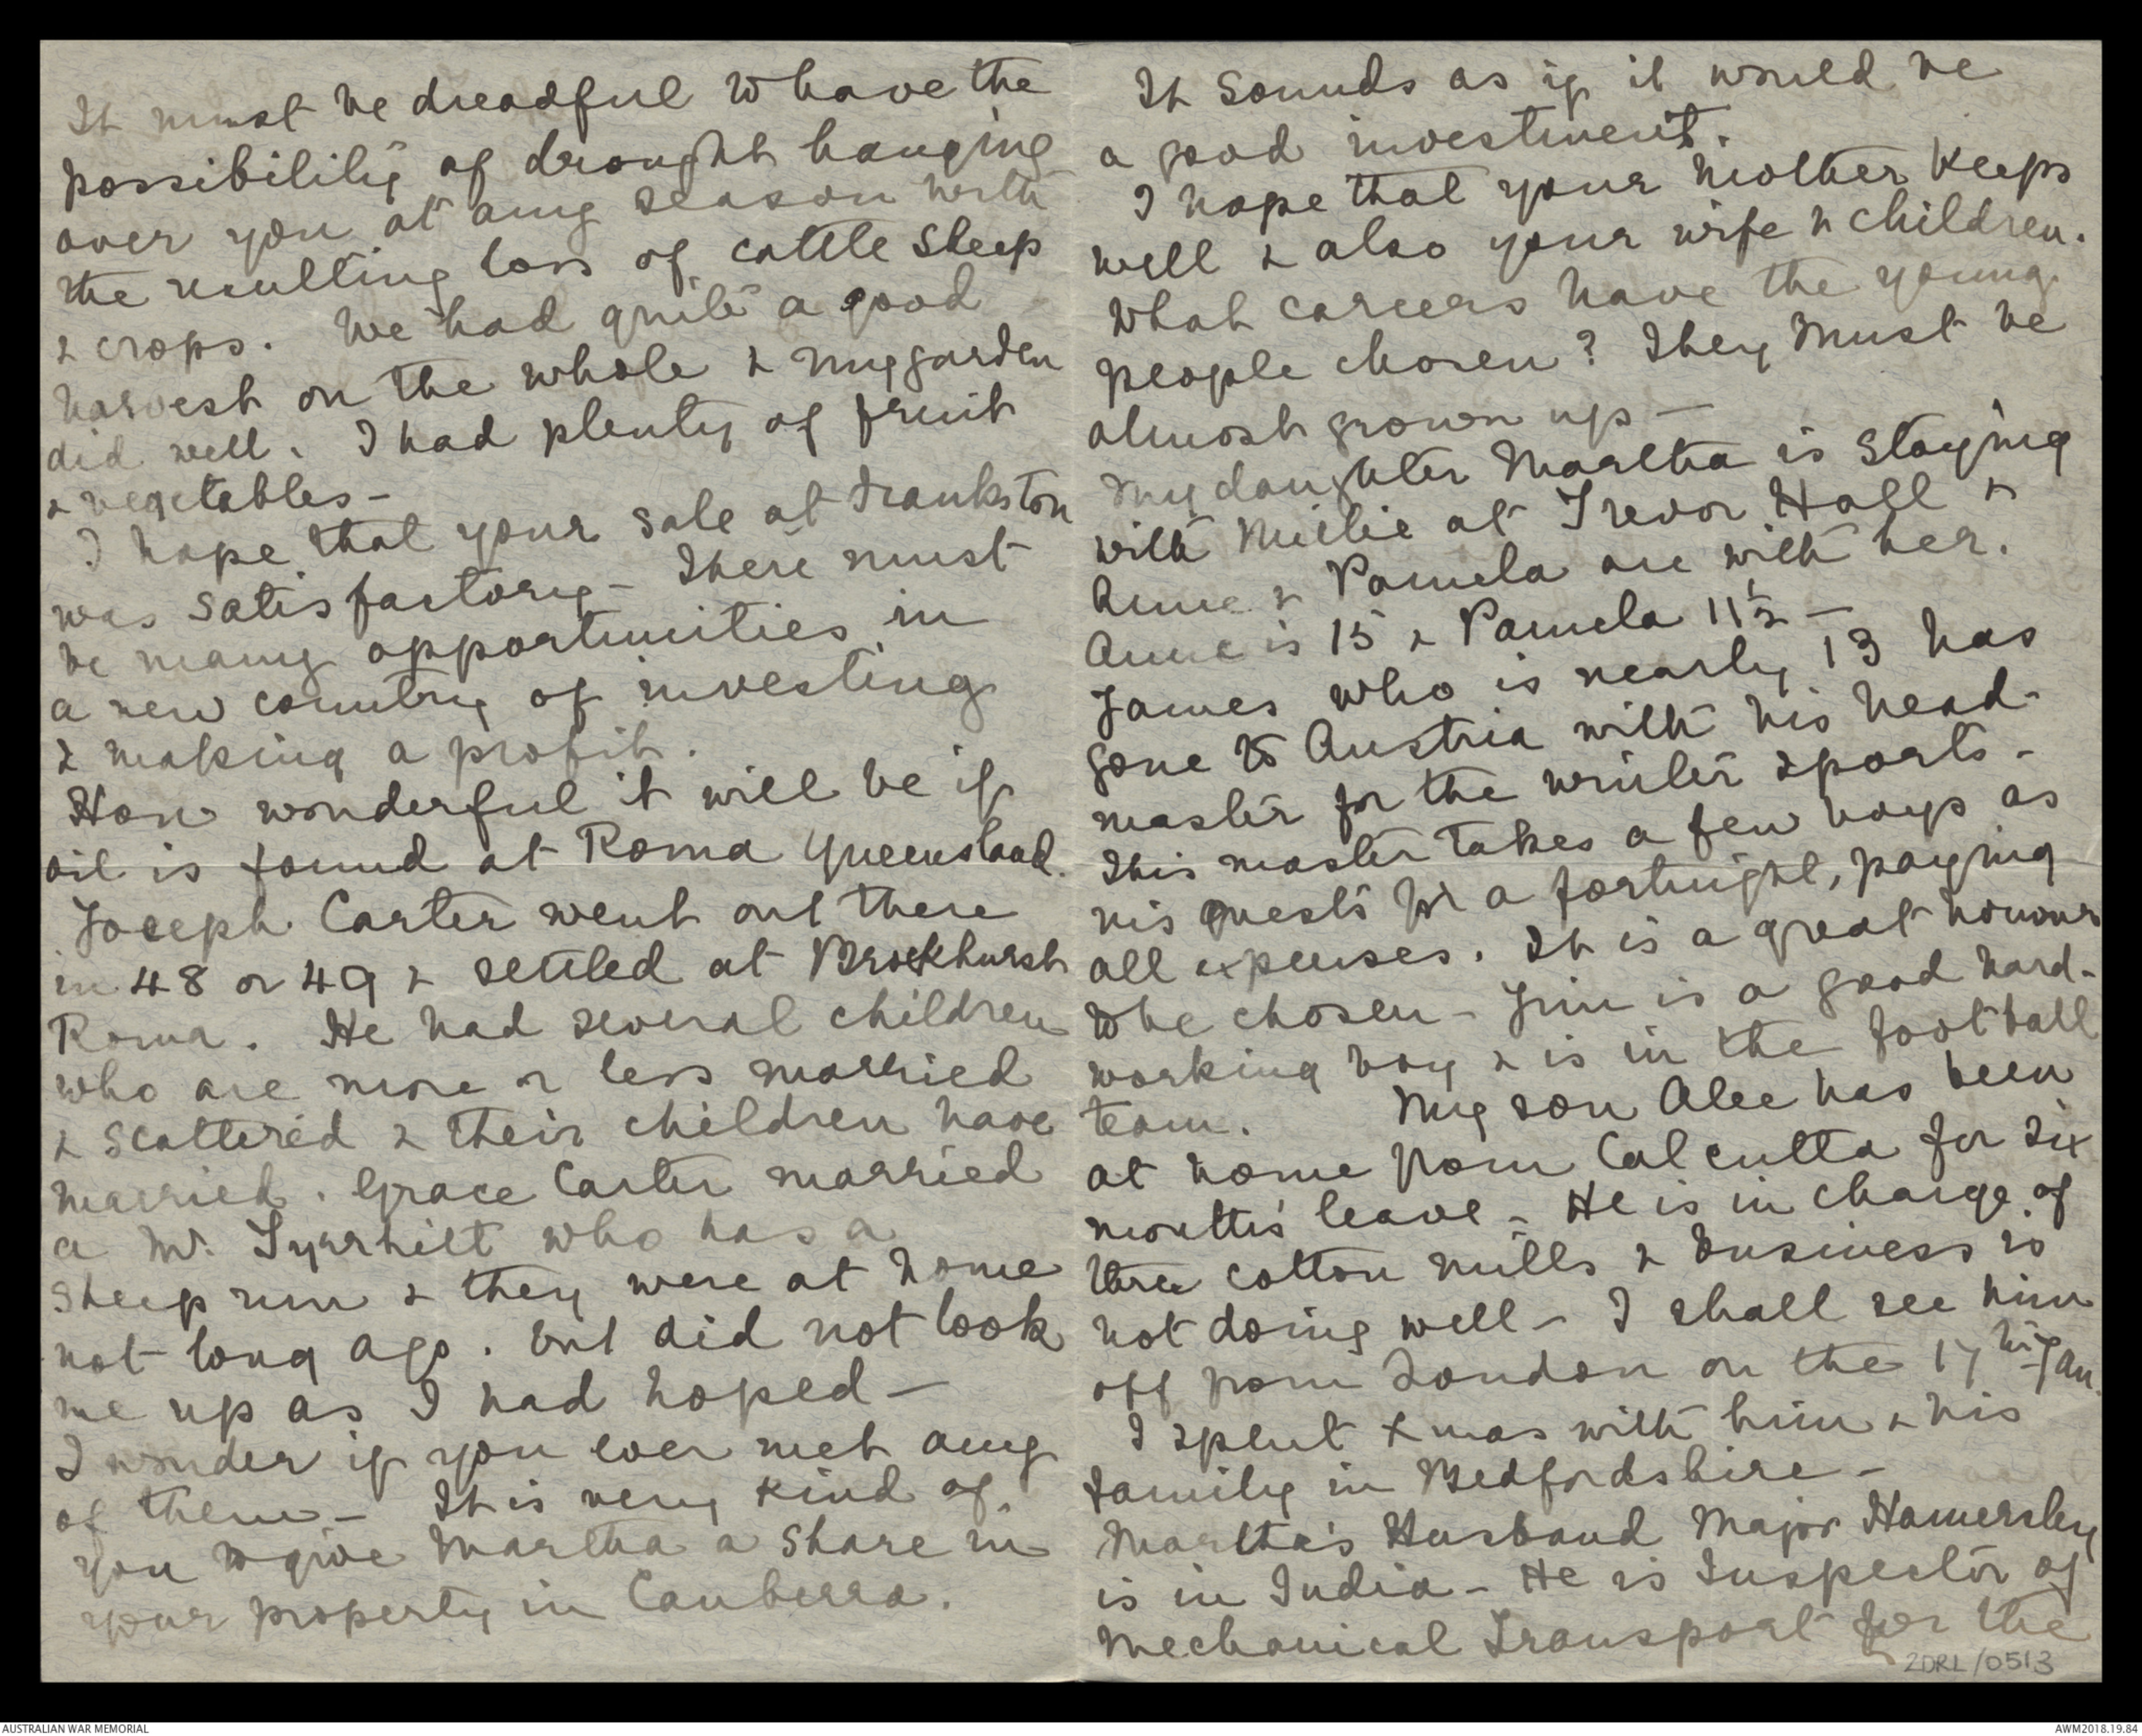 It must be dreadful to have the
possibility of drought hanging
over you at any season with
the resulting loss of cattle sheep
& crops. We had quite a good
harvest on the whole & my garden
did well. I had plenty of fruit
& vegetables -
I hope that your sale at Frankston
was satisfactory - There must
be many opportunities in
a new country of investing
& making a profit.
How wonderful it will be if
oil is found at Roma Queensland.
Joseph Carter went out there
in 48 or 49 & settled at Brockhurst
Roma. He had several children
who are more or less married
& scattered & their children have
married. Grace Carter married
a Mr. who has a
sheep run & they were at home
not long ago. but did not look
me up as I had hoped -
I wonder if you ever met any
of them - It is very kind of
you to give Martha a share in
your property in Canberra.
It sounds as if it would be
a good investment.
I hope that your mother keeps
well & also your wife & children.
What careers have the young
people chosen? They must be
almost grown up -
My daughter Martha is staying
with Millie at Trevor Hall &
Anne & Pamela are with her.
Anne is 15 & Pamela 11½ -
James who is nearly 13 has
gone to Austria with his head-
master for the winter sports -
This master takes a few boys as
his guests for a fortnight, paying
all expenses. It is a great honour
to be chosen - Jim is a good hard-
working boy & is in the football
team. My son Alec has been
at home from Calcutta for six
months leave - He is in charge of
three cotton mills & business is
not doing well - I shall see him
off from London on the 17th Jan.
I spent Xmas with him & his
family in Bedfordshire -
Martha's Husband Major Hamersley
is in India - He is Inspector of
Mechanical Transport for the
2DRL/0513
AUSTRALIAN WAR MEMORIAL
AWM2018.19.84